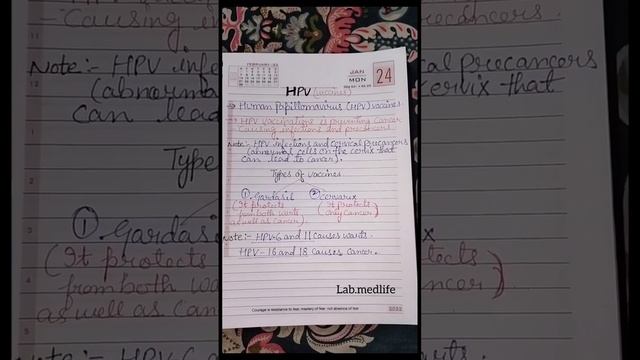 FEBRUARY-22
JAN
MON
24
HPV (vaccines)
→ Human Papillomavirus (HPV) vaccines
→ HPV vaccinations is preventing cancer
- Causing infections and precancers.
Note:- HPV infections and cervical precancers
(abnormal cells on the cervix that
can lead to cancer).
Types of vaccines
① Gardasil ② Cervarix
(It protects (It protects
from both warts only cancer)
as well as cancer)
Note:- HPV-6 and 11 causes warts.
HPV-16 and 18 causes cancer.
Lab.medlife
Courage is resistance to fear, mastery of fear, not absence of fear
2022